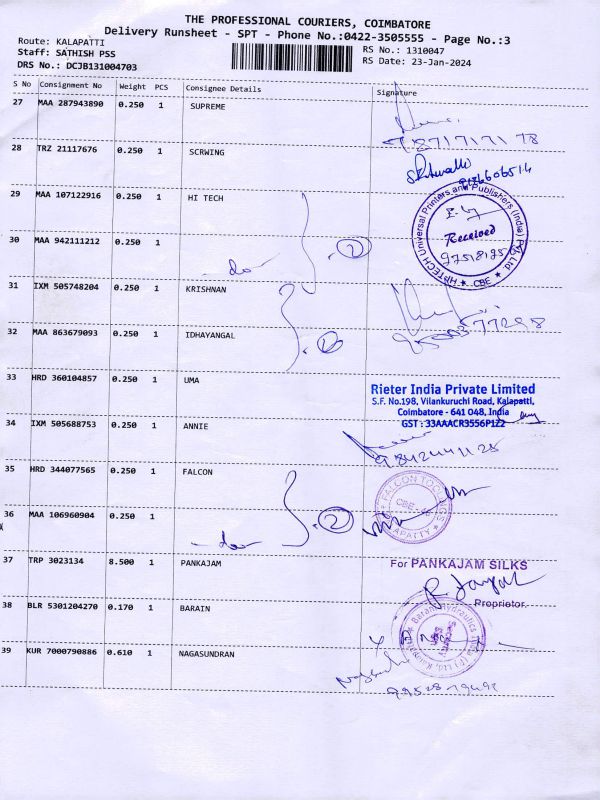 THE PROFESSIONAL COURIERS, COIMBATORE
Delivery Runsheet - SPT - Phone No.:0422-3505555 - Page No.:3
Route: KALAPATTI
Staff: SATHISH PSS
DRS No.: DCJB131004703
RS No.: 1310047
RS Date: 23-Jan-2024
S No Consignment No Weight PCS Consignee Details Signature
27 MAA 287943890 0.250 1 SUPREME
28 TRZ 21117676 0.250 1 SCRWING
29 MAA 107122916 0.250 1 HI TECH
HITECH Universal Printers and Publishers (India) Pvt. Ltd. * CBE *
Received
30 MAA 942111212 0.250 1 -do- 2
31 IXM 505748204 0.250 1 KRISHNAN
32 MAA 863679093 1 0.250 IDHAYANGAL 2
33 HRD 360104857 0.250 1 UMA
Rieter India Private Limited
S.F. No.198, Vilankuruchi Road, Kalapatti,
Coimbatore - 641 048, India
GST : 33AAACR3556P1Z2
34 IXM 505688753 0.250 1 ANNIE
9842441128
35 HRD 344077565 0.250 1 FALCON
FALCON TOOLINGS
36 MAA 106960904 0.250 1 -do- 2
37 TRP 3023134 8.500 1 PANKAJAM
For PANKAJAM SILKS
Proprietor.
38 BLR 5301204270 0.170 1 BARAIN
39 KUR 7000790886 0.610 1 NAGASUNDRAN